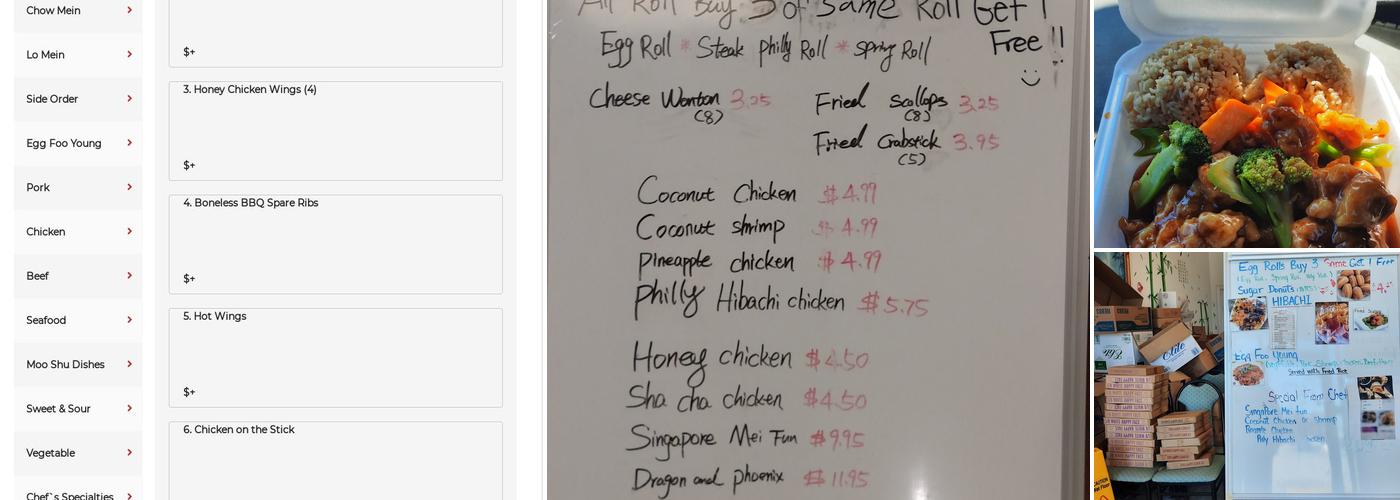 Chow Mein
Lo Mein
Side Order
Egg Foo Young
Pork
Chicken
Beef
Seafood
Moo Shu Dishes
Sweet & Sour
Vegetable
Chef`s Specialties
$+
3. Honey Chicken Wings (4)
$+
4. Boneless BBQ Spare Ribs
$+
5. Hot Wings
$+
6. Chicken on the Stick
All Roll Buy 3 of Same Roll Get 1
Free !!
Egg Roll * Steak philly Roll * spring Roll
Cheese Wonton 3.25
(8)
Fried Scollops 3.25
(8)
Fried Crabstick 3.95
(5)
Coconut Chicken $4.99
Coconut shrimp $4.99
Pineapple chicken $4.99
Philly Hibachi chicken $5.75
Honey chicken $4.50
Sha cha chicken $4.50
Singapore Mei Fun $9.95
Dragon and phoenix $11.95
Egg Rolls Buy 3 Same Get 1 Free
Sugar Donuts
HIBACHI
Egg Foo Young
Served with Fried Rice
Special From Chef
Singapore Mei fun
Coconut Chicken Or Shrimp
Chicken
Hibachi
Elite
CAUTION